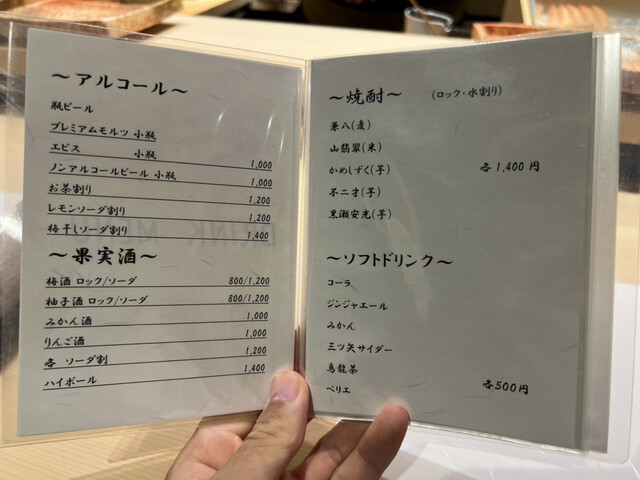 ～アルコール～
瓶ビール
プレミアムモルツ 小瓶
エビス 小瓶 1,000
ノンアルコールビール 小瓶 1,000
お茶割り 1,200
レモンソーダ割り 1,200
梅干しソーダ割り 1,400
～果実酒～
梅酒 ロック/ソーダ 800/1,200
柚子酒 ロック/ソーダ 800/1,200
みかん酒 1,000
りんご酒 1,000
各 ソーダ割 1,200
ハイボール 1,400
～焼酎～ (ロック・水割り)
兼八(麦)
山翡翠(米)
かめしずく(芋) 各 1,400 円
不二才(芋)
黒瀬安光(芋)
～ソフトドリンク～
コーラ
ジンジャエール
みかん
三ツ矢サイダー
烏龍茶
ペリエ 各500円